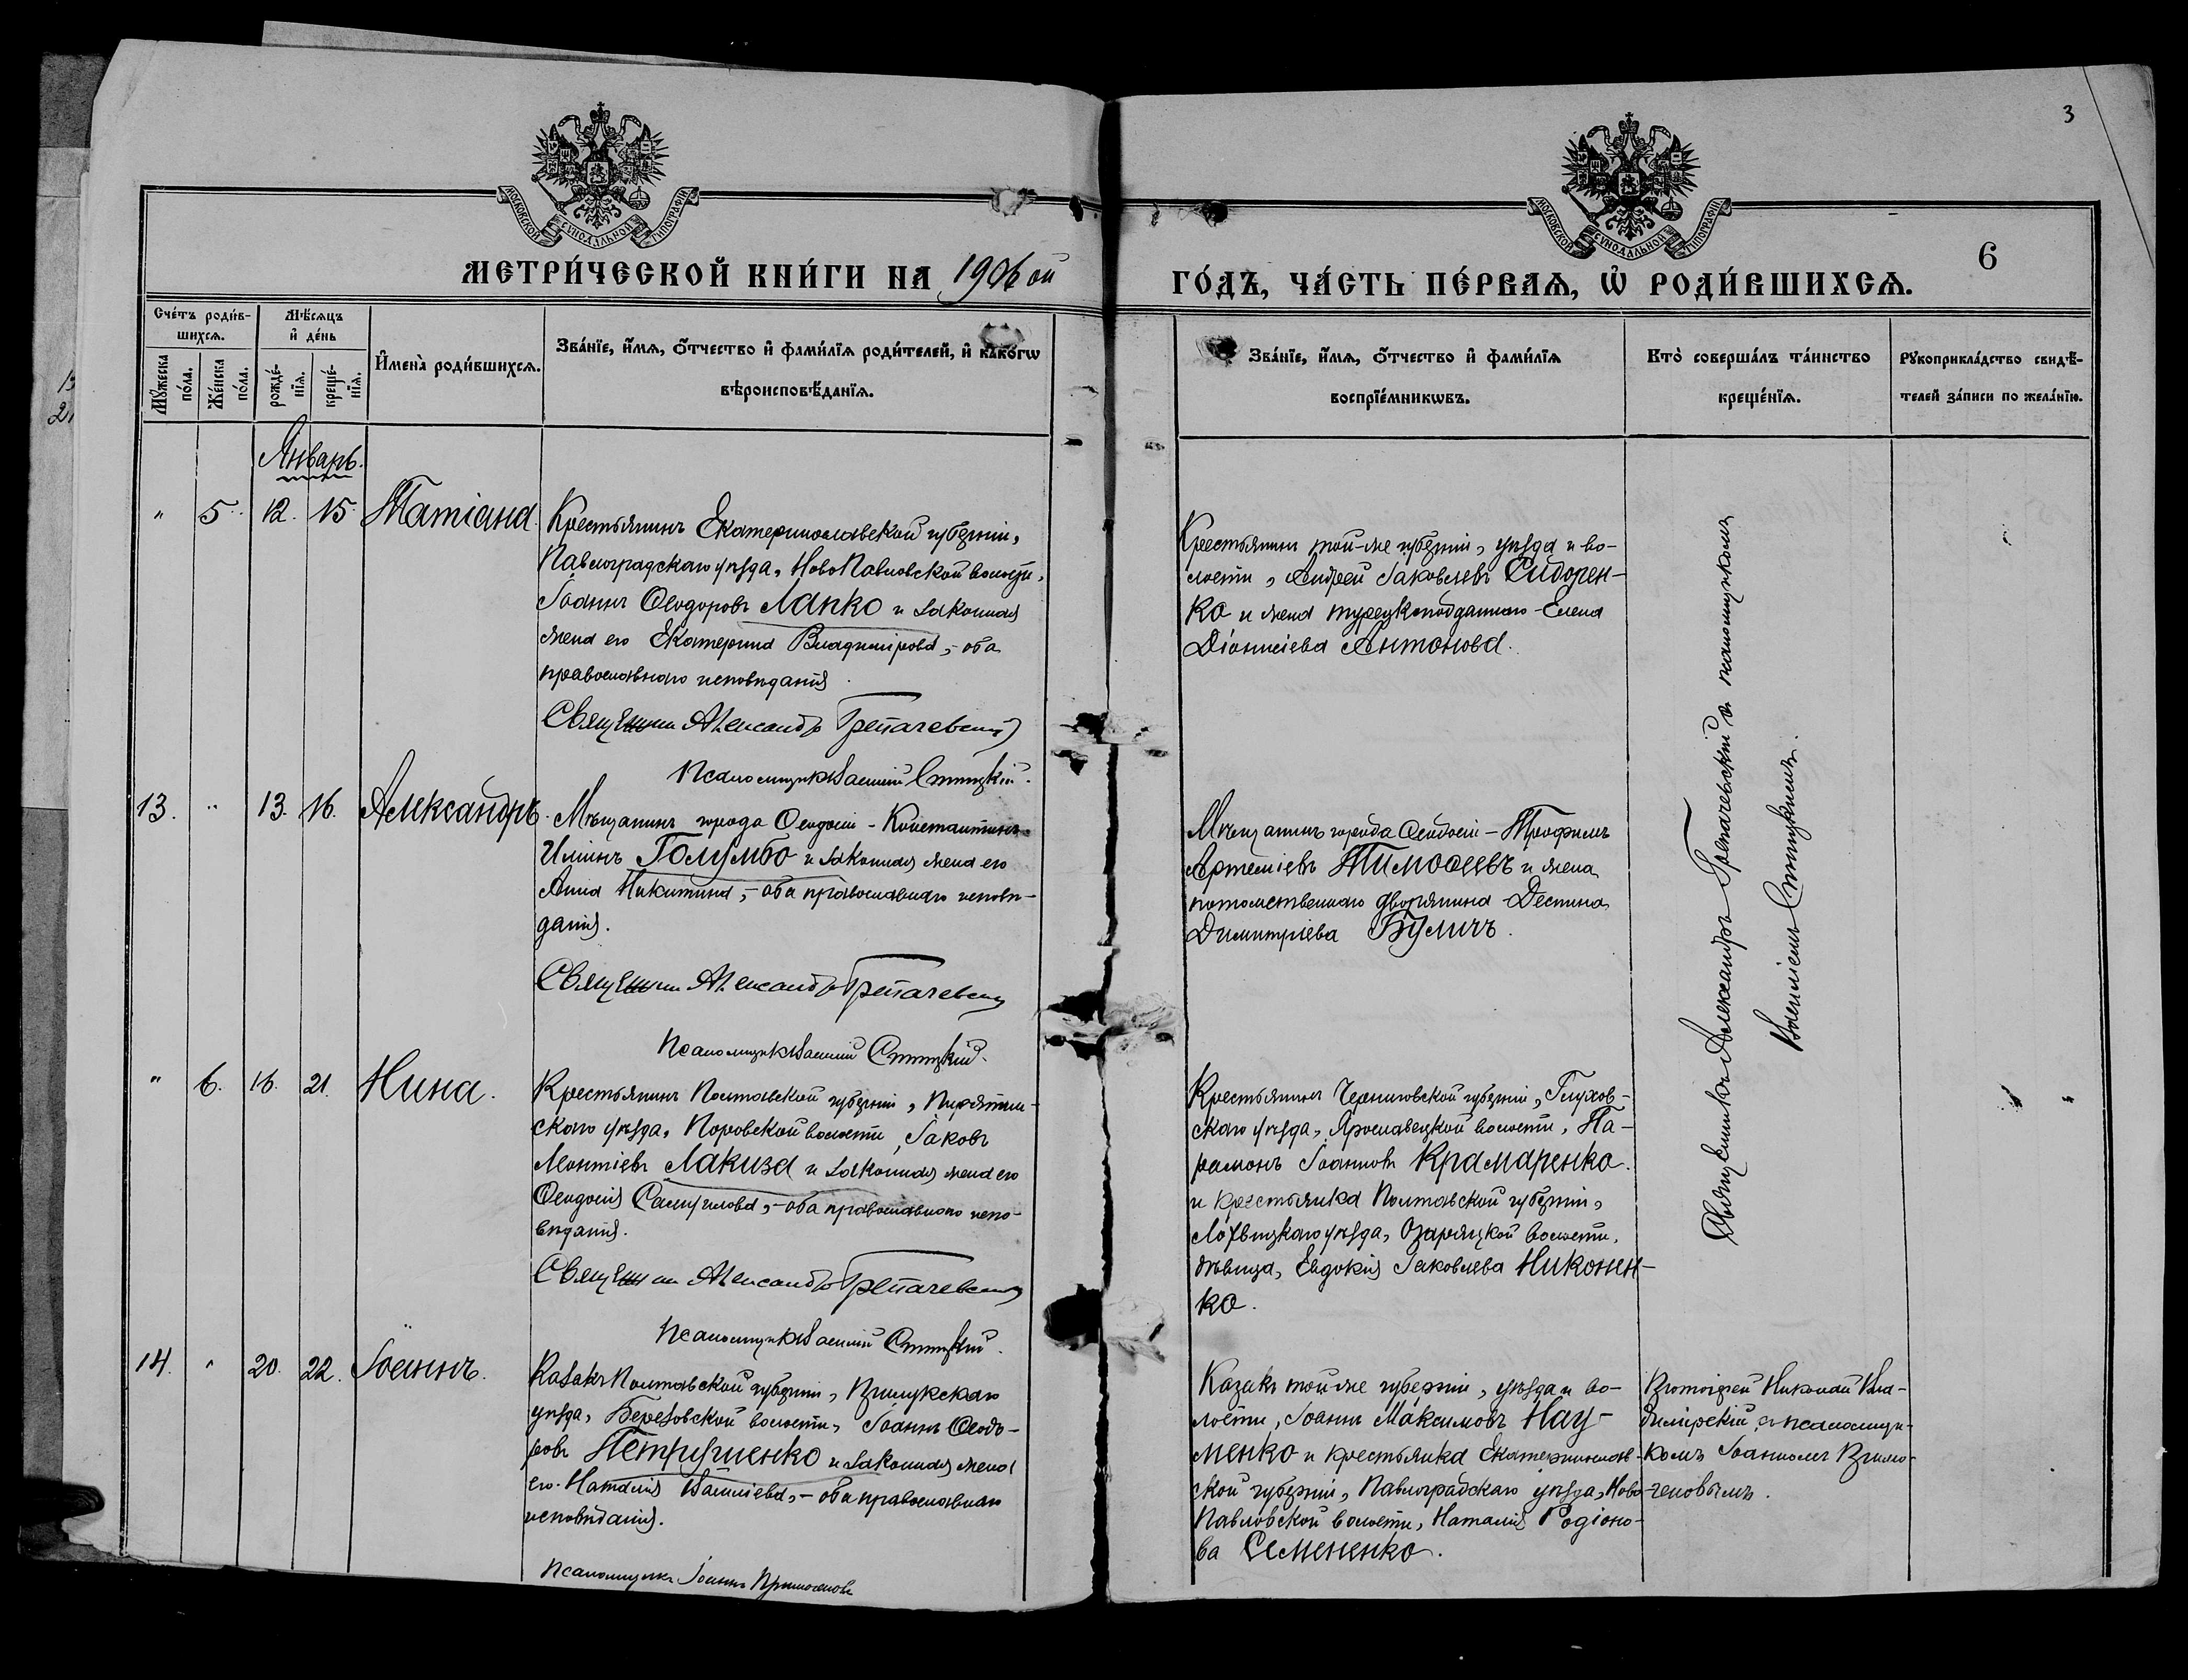 3
МОСКОВСКОЙ СУНОДАЛЬНОЙ ТИПОГРАФІИ
МОСКОВСКОЙ СУНОДАЛЬНОЙ ТИПОГРАФІИ
6
МЕТРИ́ЧЕСКОЙ КНИ́ГИ НА 1906 ой
ГО́ДЪ, ЧА́СТЬ ПЕ́РВАѦ, Ѡ҆ РОДИ́ВШИХСѦ.
Сче́тъ роди́в-
шихсѧ.
Мѣ́сѧцъ
и҆ де́нь
Мꙋ́жеска по́ла.
Же́нска по́ла.
рожде́-нїѧ.
креще́-нїѧ.
И҆мена̀ роди́вшихсѧ.
Зва́нїе, и҆́мѧ, ѻ҆́тчество и҆ фами́лїѧ роди́телей, и҆ како́гѡ
вѣроисповѣ́данїѧ.
Зва́нїе, и҆́мѧ, ѻ҆́тчество и҆ фами́лїѧ
воспрїе́мникѡвъ.
Кто̀ соверша́лъ та́инство
креще́нїѧ.
Рꙋкоприкла́дство свидѣ́-
телей за́писи по жела́нїю.
Январь.
" 5. 12. 15 Татіана.
Крестьянинъ Екатеринославской губерніи,
Павлоградскаго уѣзда, Ново Павловской волости,
Іоаннъ Ѳеодоровъ Лапко и законная
жена его Екатерина Владимірова, – оба
православнаго исповѣданія
Священник Александръ Грепачевскій
Псаломщикъ Василій Спицкій.
Крестьянинъ той-же губерніи, уѣзда и во-
лости, Андрей Іаковлевъ Сидорен-
ко и жена турецкоподданнаго – Елена
Діонисіева Антонова.
13. " 13. 16. Александръ.
Мѣщанинъ города Ѳеодосіи – Константинъ
Ильинъ Голумбо и законная жена его
Анна Никитина, – оба православнаго исповѣ-
данія.
Священник Александръ Грепачевскій
Псаломщикъ Василій Спицкій.
Мѣщанинъ города Ѳеодосіи – Трофимъ
Артеміевъ Тимоѳеевъ и жена
потомственнаго дворянина Деспина
Димитріева Буличъ.
" 6. 16. 21. Нина.
Крестьянинъ Полтавской губерніи, Пирятин-
скаго уѣзда, Поровской волости, Іаковъ
Леонтіевъ Лакиза и законная жена его
Ѳеодосія Самуилова, – оба православнаго испо-
вѣданія.
Священник Александръ Грепачевскій
Псаломщикъ Василій Спицкій.
Крестьянинъ Черниговской губерніи, Глухов-
скаго уѣзда, Ярославецкой волости, Па-
рамонъ Іоанновъ Крамаренко
и крестьянка Полтавской губерніи,
Лохвицкаго уѣзда, Озаряцкой волости,
дѣвица, Евдокія Іаковлева Никонен-
ко.
Священникъ Александръ Грепачевскій съ псаломщикомъ
Василіемъ Спицкимъ.
14. " 20. 22. Іоаннъ.
Казакъ Полтавской губерніи, Прилукскаго
уѣзда, Березовской волости, Іоаннъ Ѳеодо-
ровъ Петрушенко и законная жена
его Наталія Василіева, – оба православнаго
исповѣданія.
Псаломщикъ Іоаннъ
Казакъ той-же губерніи, уѣзда и во-
лости, Іоаннъ Максимовъ Нау-
менко и крестьянка Екатеринослав-
ской губерніи, Павлоградскаго уѣзда, Ново-
Павловской волости, Наталія Родіоно-
ва Семененко.
Протоіерей Николай Вла-
димірскій съ псаломщи-
комъ Іоанномъ